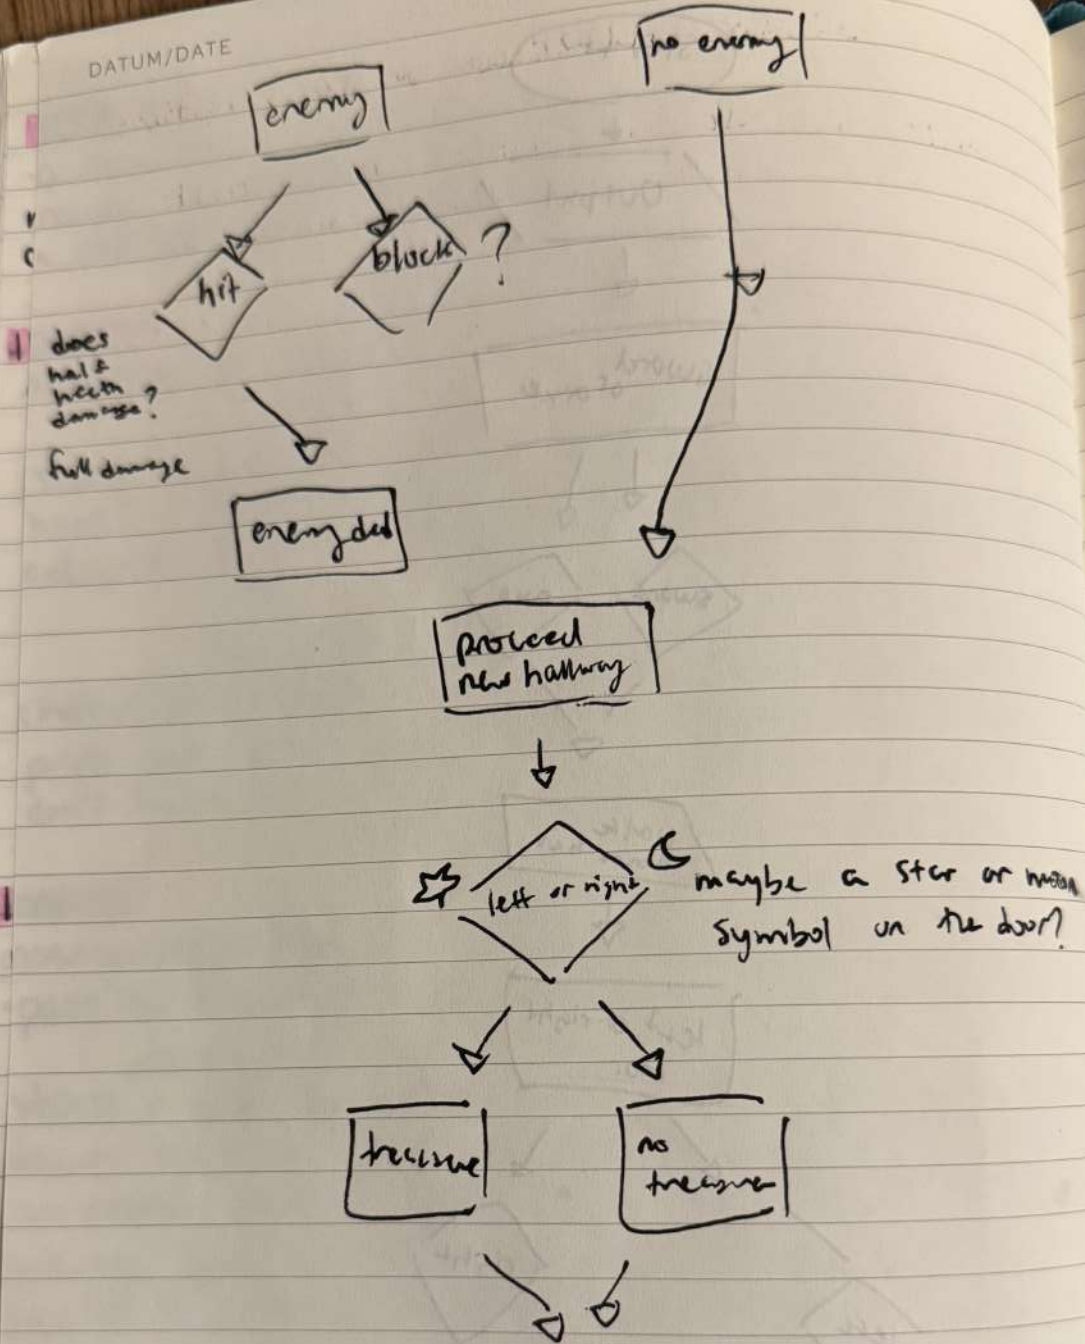 DATUM/DATE
no enemy
enemy
hit
block ?
does
half
health
damage?
full damage
enemy dead
proceed
new hallway
left or right
maybe a star or moon
symbol on the door?
treasure
no
treasure